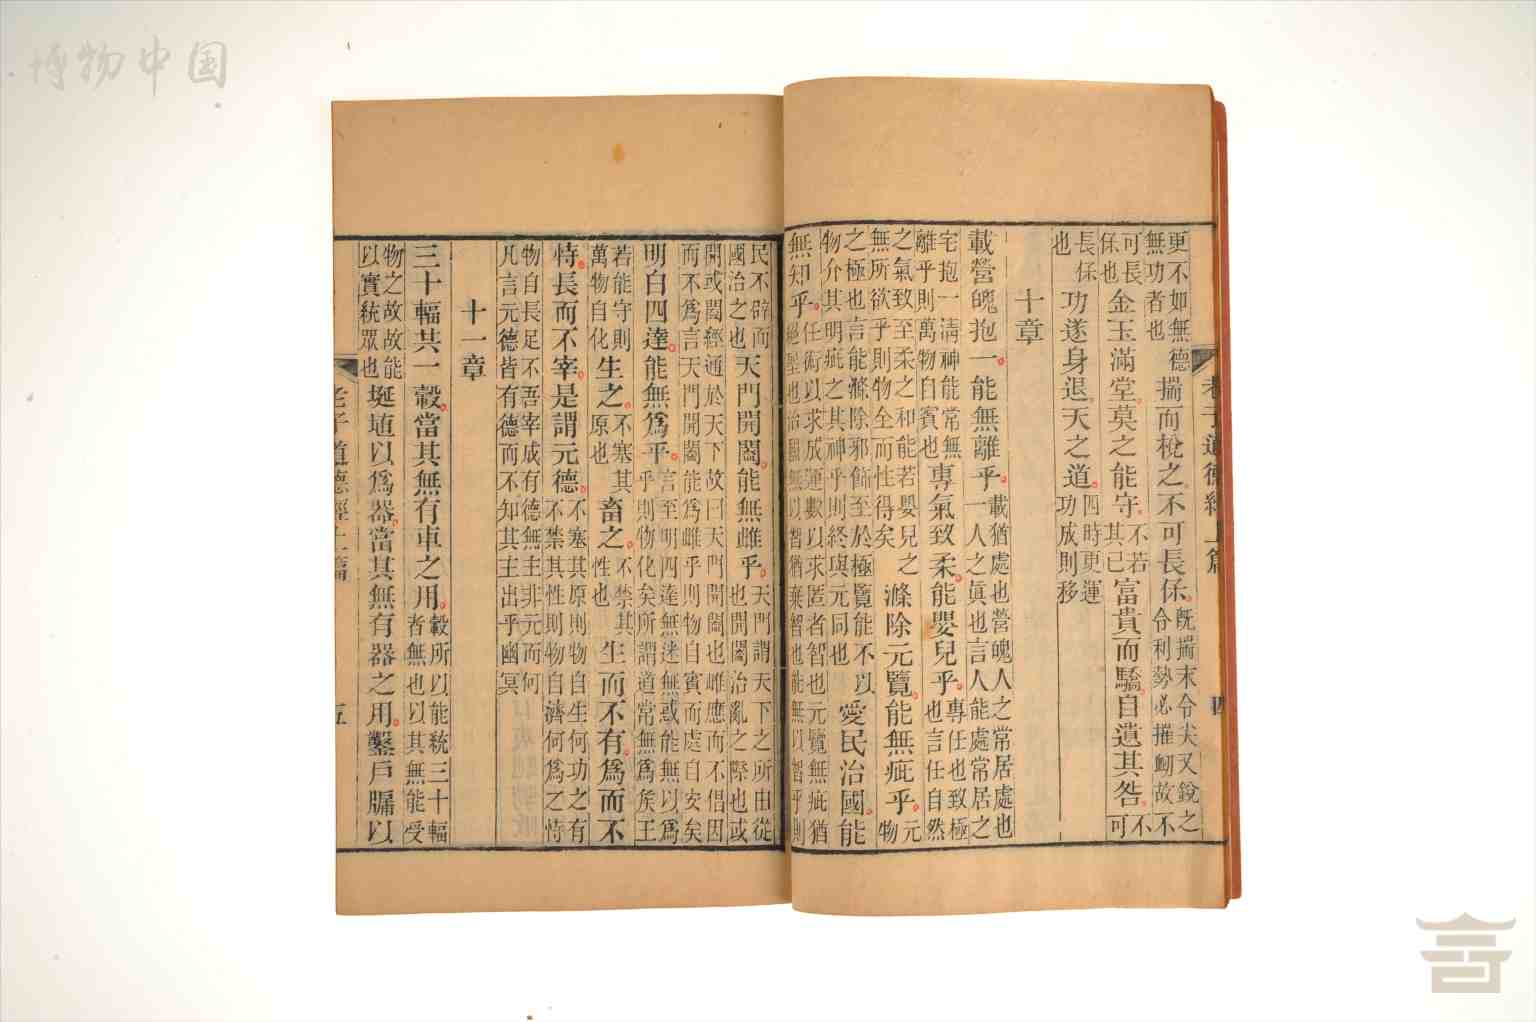 博物中国
老子道德經上篇 四
更不如無德無功者也揣而梲之不可長保既揣末令尖又銳之令利勢必摧衂故不
可長保也金玉滿堂莫之能守不若其己富貴而驕自遺其咎不可
長保也功遂身退天之道四時更運功成則移
十章
載營魄抱一能無離乎載猶處也營魄人之常居處也一人之眞也言人能處常居之
宅抱一淸神能常無離乎則萬物自賓也專氣致柔能嬰兒乎專任也致極也言任自然
之氣致至柔之和能若嬰兒之無所欲乎則物全而性得矣滌除元覽能無疵乎元物
之極也言能滌除邪飾至於極覽能不以物介其明疵之其神乎則終與元同也愛民治國能
無知乎任術以求成運數以求匿者智也元覽無疵猶絕聖也治國無以智猶棄智也能無以智乎則
民不辟而國治之也天門開闔能無雌乎天門謂天下之所由從也開闔治亂之際也或
開或闔經通於天下故曰天門開闔也雌應而不倡因而不爲言天門開闔能爲雌乎則物自賓而處自安矣
明白四達能無爲乎言至明四達無迷無惑能無以爲乎則物化矣所謂道常無爲矣王
若能守則萬物自化生之不塞其原也畜之不禁其性也生而不有爲而不
恃長而不宰是謂元德不塞其原則物自生何功之有不禁其性則物自濟何爲之恃
物自長足不吾宰成有德無主非元而何凡言元德皆有德而不知其主出乎幽冥
十一章
三十輻共一轂當其無有車之用轂所以能統三十輻者無也以其無能受
物之故故能以實統眾也埏埴以爲器當其無有器之用鑿戶牖以
老子道德經上篇 五